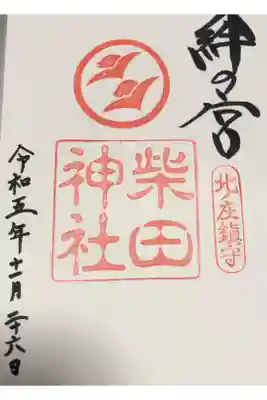 絆の宮
北ノ庄鎮守
柴田
神社
令和五年十一月二十六日